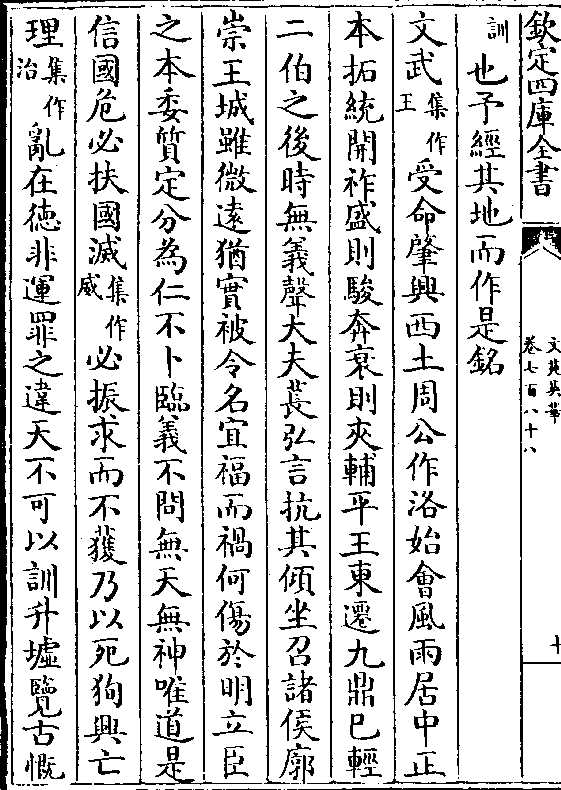 欽定四庫全書
文苑英華
卷七百八十八
十
訓
也予經其地而作是銘
文武集作王受命肇興西土周公作洛始會風雨居中正
本拓統開祚盛則駿奔衰則夾輔平王東遷九鼎已輕
二伯之後時無義聲大夫萇弘言抗其傾坐召諸侯廓
崇王城雖微遠猶實被令名宜福而禍何傷於明立臣
之本委質定分為仁不卜臨義不問無天無神唯道是
信國危必扶國滅集作威必振求而不獲乃以死狥興亡
理集作治亂在徳非運罪之違天不可以訓升墟覽古慨